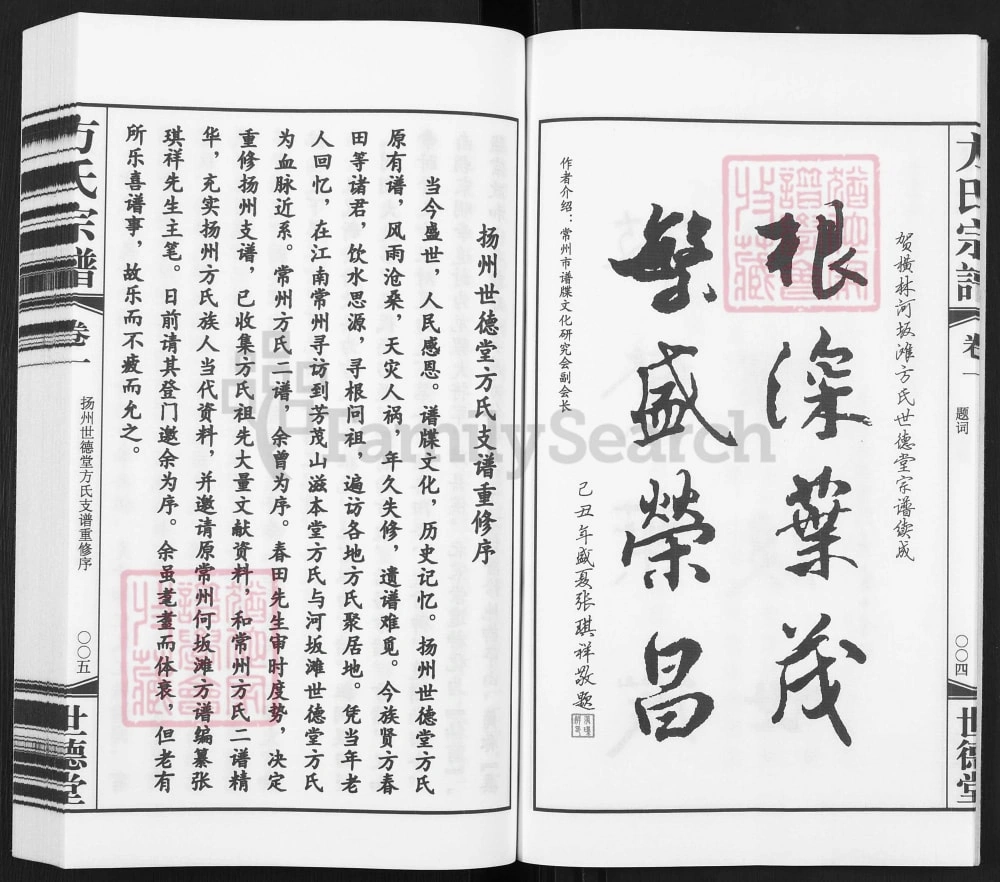 方氏宗谱
卷一
题词
〇〇四
世德堂
贺横林河坂滩方氏世德堂宗谱续成
根深葉茂
繁盛荣昌
己丑年盛夏张琪祥敬题
作者介绍：常州市谱牒文化研究会副会长
扬州世德堂方氏支谱重修序
当今盛世，人民感恩。谱牒文化，历史记忆。扬州世德堂方氏
原有谱，风雨沧桑，天灾人祸，年久失修，遗谱难觅。今族贤方春
田等诸君，饮水思源，寻根问祖，遍访各地方氏聚居地。凭当年老
人回忆，在江南常州寻访到芳茂山滋本堂方氏与河坂滩世德堂方氏
为血脉近系。常州方氏二谱，余曾为序。春田先生审时度势，决定
重修扬州支谱，已收集方氏祖先大量文献资料，和常州方氏二谱精
华，充实扬州方氏族人当代资料，并邀请原常州何坂滩方谱编纂张
琪祥先生主笔。日前请其登门邀余为序。余虽耄耋而体衰，但老有
所乐喜谱事，故乐而不疲而允之。
方氏宗谱
卷一
扬州世德堂方氏支谱重修序
〇〇五
世德堂
FamilySearch